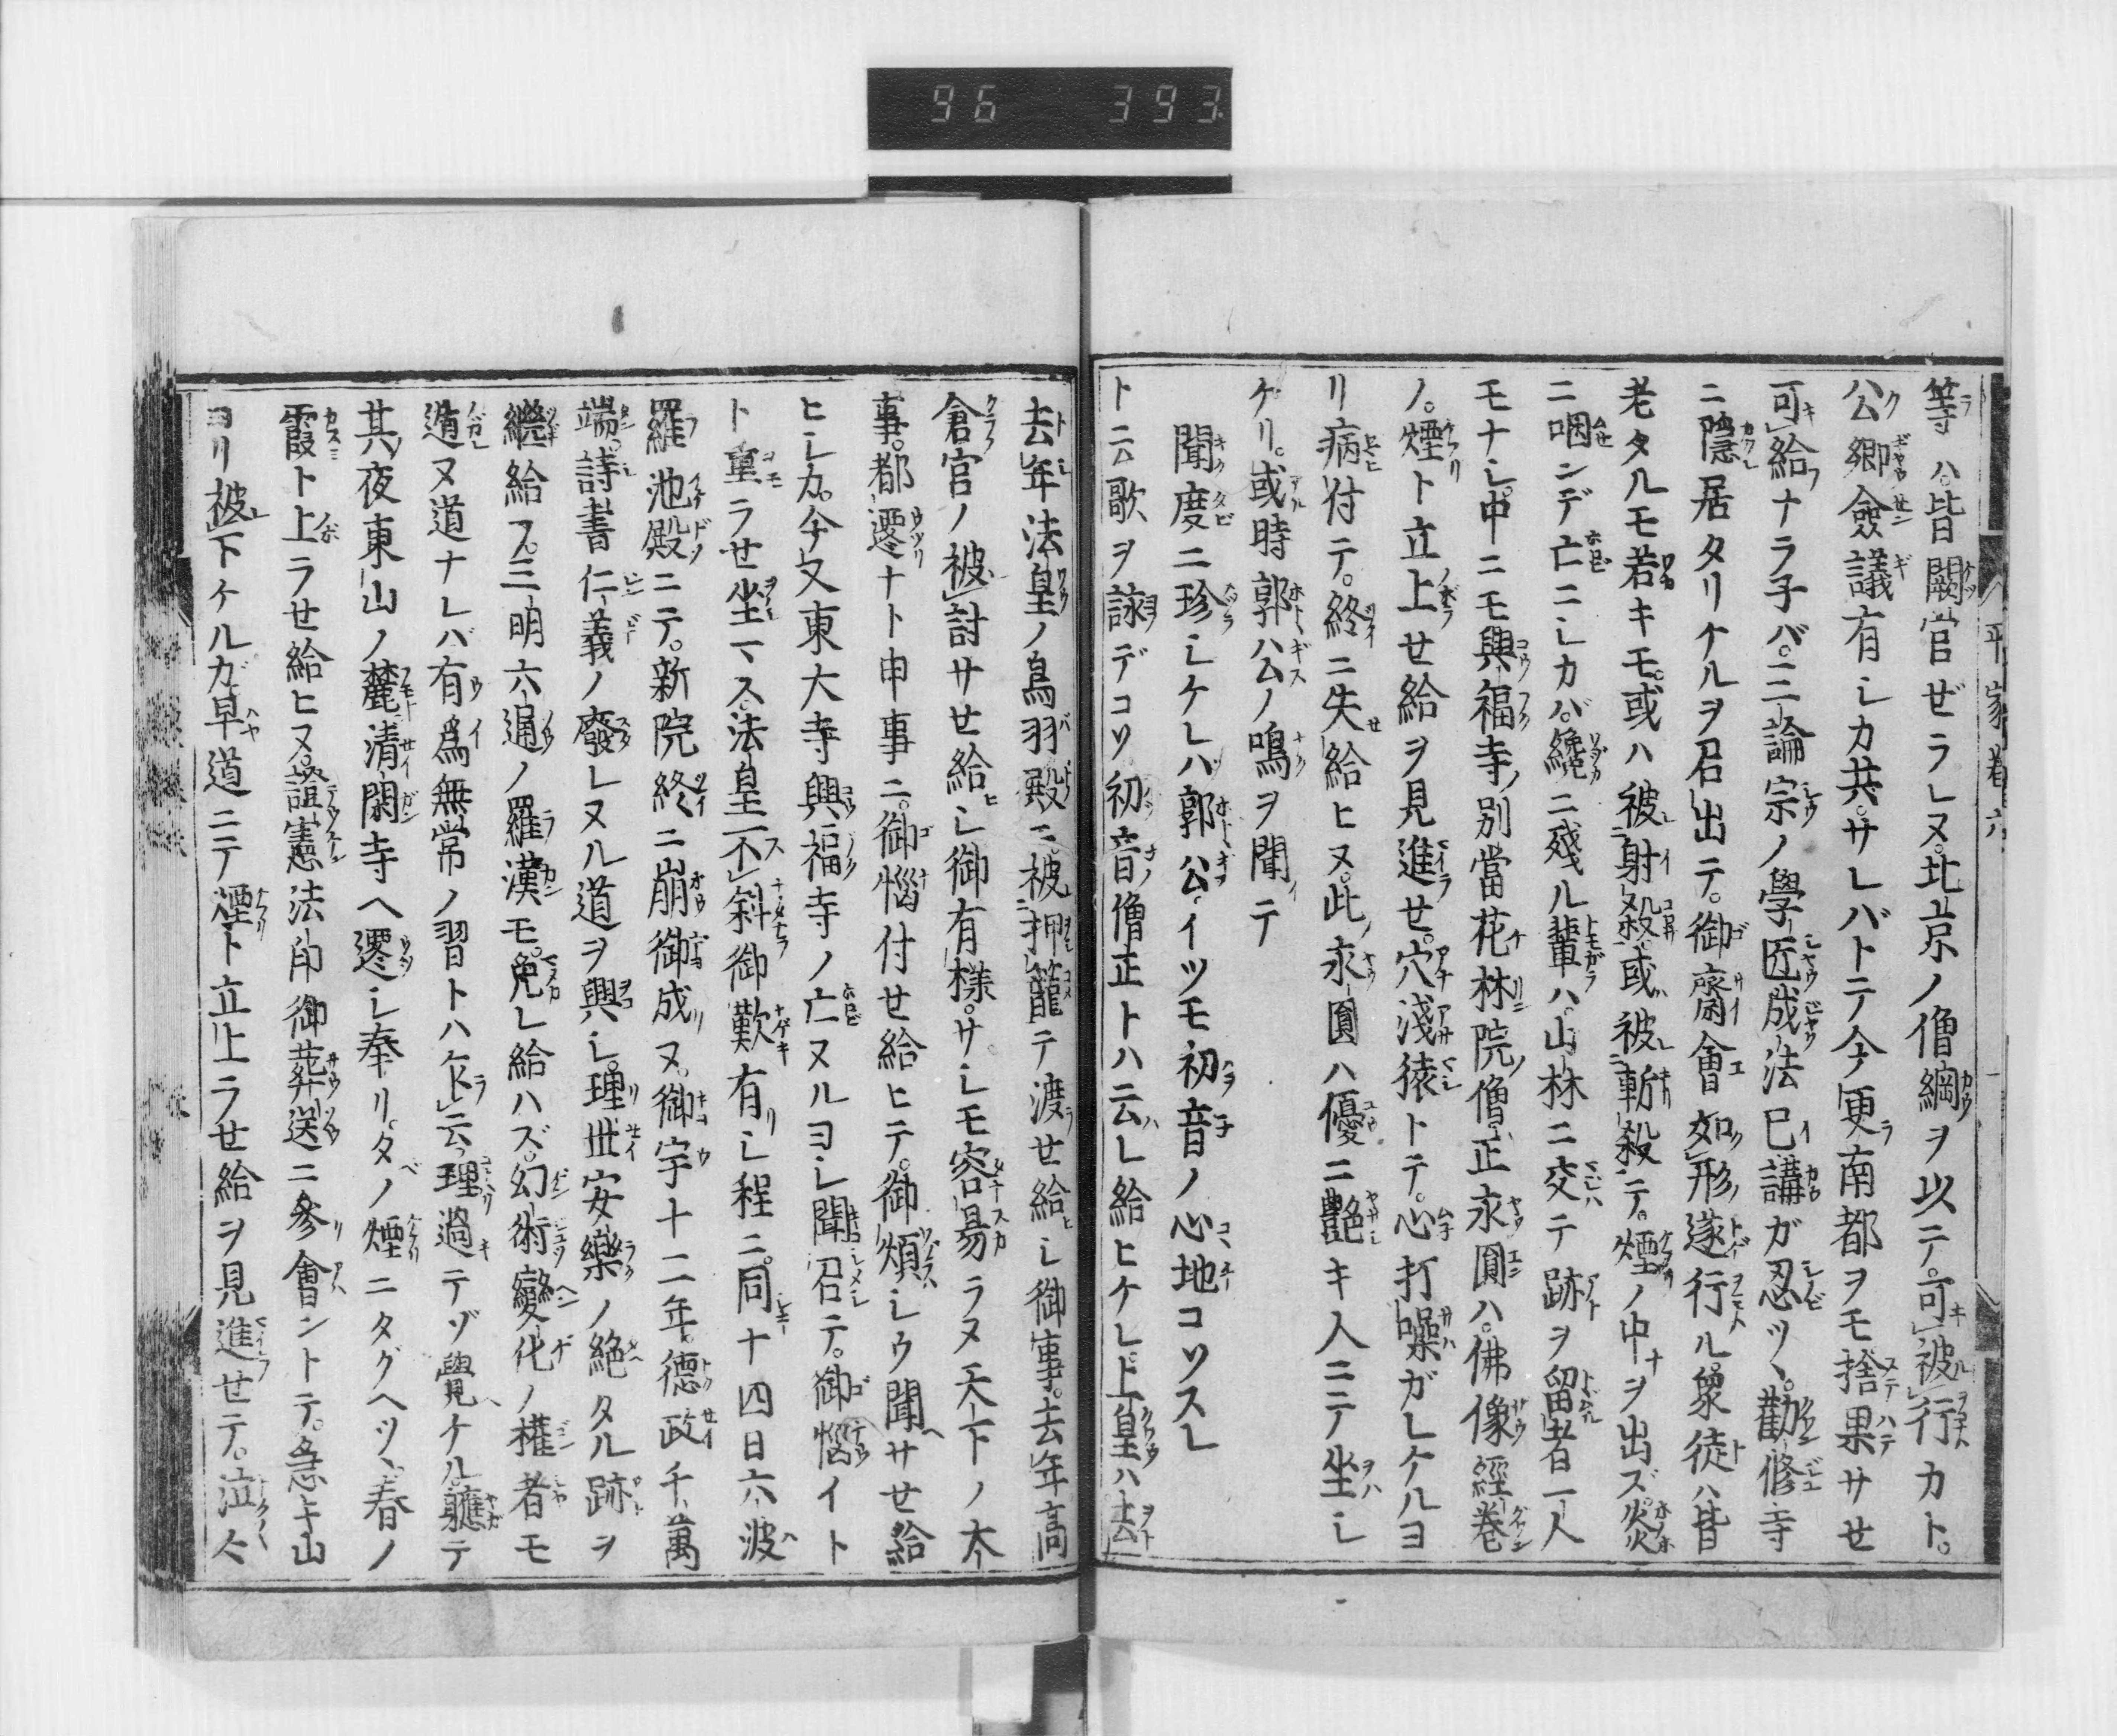 96 393
平家巻六
等ハ皆闕官ゼラレヌ。北京ノ僧綱ヲ以テ。可被行カト。
公卿僉議有シカ共。サレバトテ今更南都ヲモ捨果サせ
可給ナラ子バ。三論宗ノ學匠成法已講ガ忍ツヽ。勸修寺
ニ隱居タリケルヲ召出テ。御齋會如形遂行ル。衆徒ハ皆
老タルモ若キモ。或ハ被射殺。或被斬殺テ。煙ノ中ヲ出ズ。炎
ニ咽ンデ亡ニシカバ。纔ニ殘ル輩ハ。山林ニ交テ跡ヲ留者一人
モナシ。中ニモ興福寺ノ別當花林院僧正永圓ハ。佛像經卷
ノ。煙ト立上せ給ヲ見進せ。穴淺猿トテ。心打噪ガレケルヨ
リ病付テ。終ニ失給ヒヌ。此永圓ハ優ニ艶キ人ニテ坐シ
ケリ。或時郭公ノ鳴ヲ聞テ
聞度ニ珍シケレバ郭公イツモ初音ノ心地コソスレ
ト云歌ヲ詠デコソ初音僧正トハ云レ給ヒケレ。上皇ハ去
去年法皇ノ鳥羽殿ニ。被押籠テ渡せ給シ御事。去年高
倉宮ノ被討サせ給シ御有樣。サシモ容易ラヌ天下ノ大
事。都遷ナト申事ニ。御惱付せ給ヒテ。御煩シウ聞サせ給
ヒシカ。今又東大寺興福寺ノ亡ヌルヨシ聞召テ。御惱イト
ト重ラせ坐マス。法皇不斜御歎有シ程ニ。同十四日六波
羅池殿ニテ。新院終ニ崩御成ヌ。御宇十二年。德政千萬
端。詩書仁義ノ廢レヌル道ヲ興シ。理世安樂ノ絶タル跡ヲ
繼給フ。三明六通ノ羅漢モ。免レ給ハズ。幻術變化ノ權者モ
遁ヌ道ナレバ有爲無常ノ習トハ乍云理過テゾ覺ケル。軈テ
其夜東山ノ麓清閑寺ヘ遷シ奉リ。タベノ煙ニタグヘツヽ春ノ
霞ト上ラせ給ヒヌ。證憲法印御葬送ニ參會ントテ。急キ山
ヨリ被下ケルガ早道ニテ煙ト立上ラせ給ヲ見進せテ。泣々